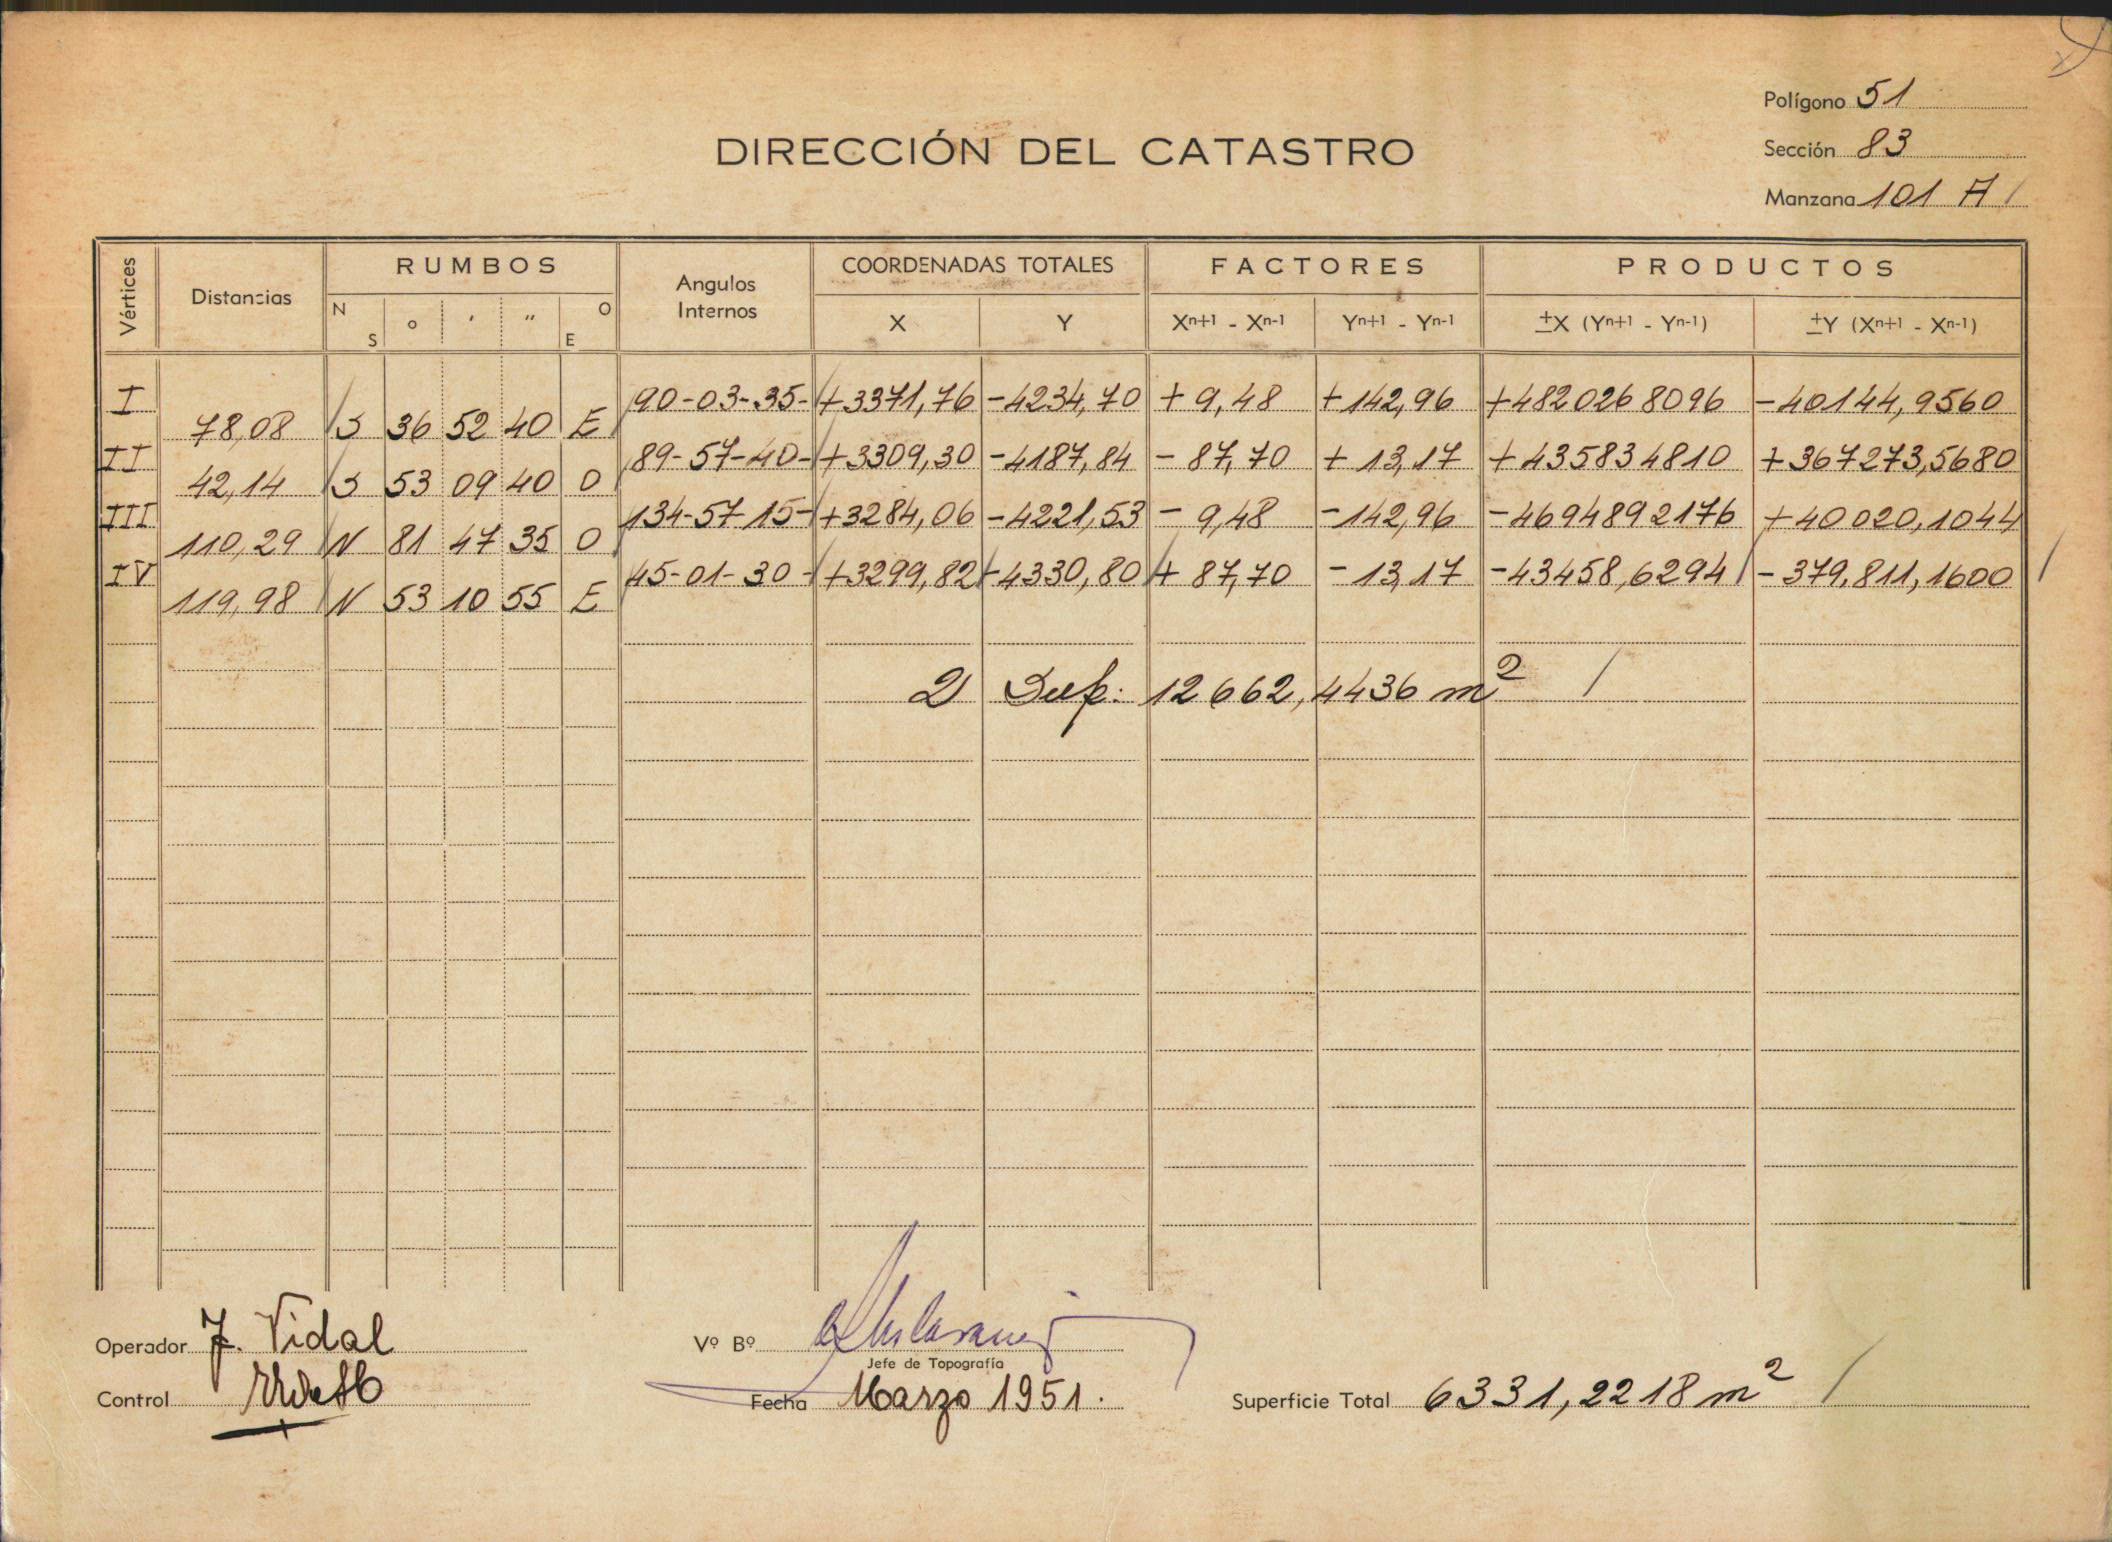 Polígono 51
DIRECCIÓN DEL CATASTRO
Sección 83
Manzana 101 A /
Vértices Distancias RUMBOS Angulos Internos COORDENADAS TOTALES FACTORES PRODUCTOS
N S o ' " O E X Y Xn+1 - Xn-1 Yn+1 - Yn-1 ±X (Yn+1 - Yn-1) ±Y (Xn+1 - Xn-1)
I 90-03-35- +3371,76 -4234,70 +9,48 +142,96 +4820268096 -40144,9560
78,08 S 36 52 40 E
II 89-57-40- +3309,30 -4187,84 -87,70 +13,17 +435834810 +367273,5680
42,14 S 53 09 40 O
III 134-57-15- +3284,06 -4221,53 -9,48 -142,96 -4694892176 +40020,1044
110,29 N 81 47 35 O
IV 45-01-30- +3299,82 -4330,80 +87,70 -13,17 -43458,6294 -379,811,1600
119,98 N 53 10 55 E
2 Sup: 12662,4436 m²
Operador J. Vidal
Vº Bº
Jefe de Topografía
Control
Fecha Marzo 1951.
Superficie Total 6331,2218 m²